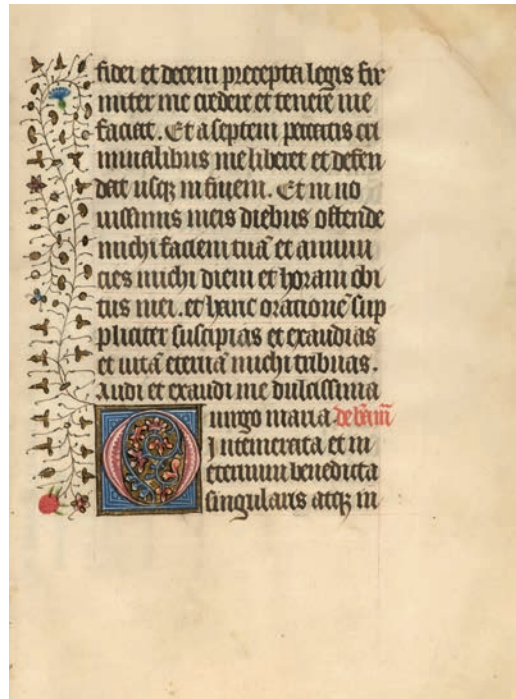 fidei et decem precepta legis fir
miter me credere et tenere me
faciat. Et a septem peccatis cri
minalibus me liberet et defen
dat usq; in finem. Et in no
uissimis meis diebus ostende
michi faciem tuā et annun
cies michi diem et horam obi
tus mei. et hanc orationē sup
pliciter suscipias et exaudias
et uitā eternā michi tribuas.
Audi et exaudi me dulcissima
uirgo maria
O Intemerata et in
eternum benedicta
singularis atq; in